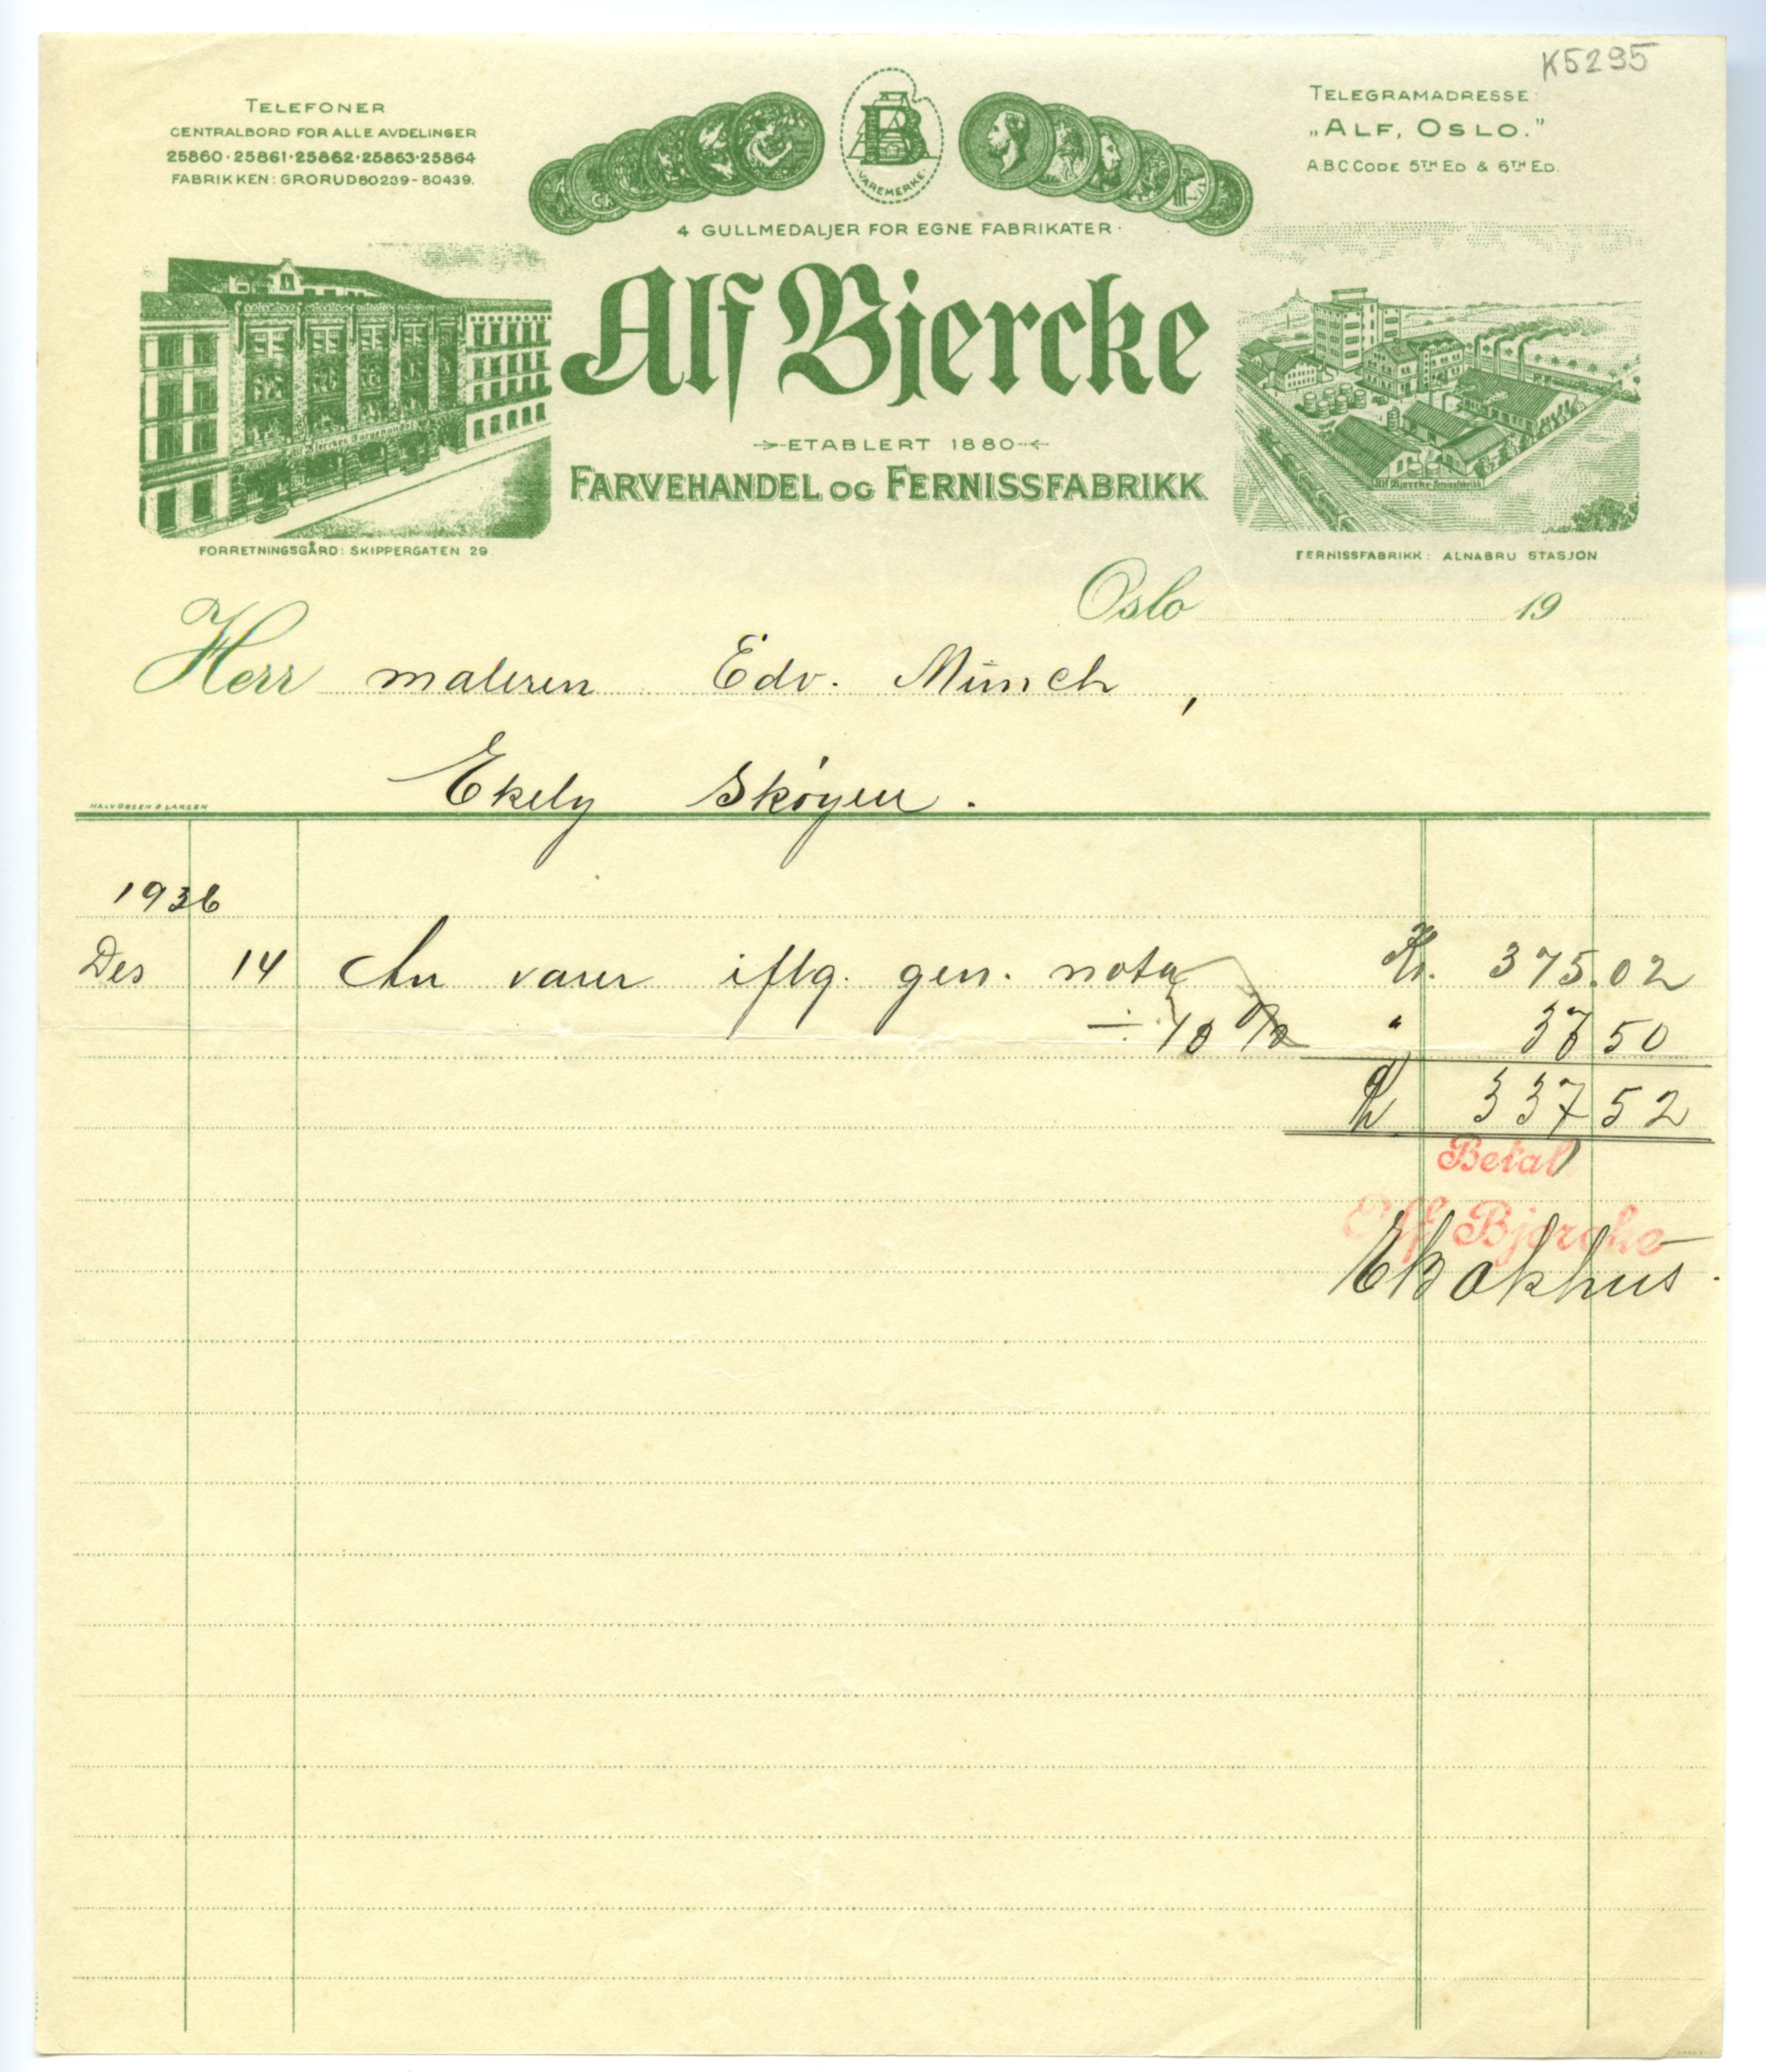 K5295
TELEFONER
CENTRALBORD FOR ALLE AVDELINGER
25860·25861·25862·25863·25864
FABRIKKEN: GRORUD 80239-80439.
B
VAREMERKE.
TELEGRAMADRESSE:
„ALF, OSLO."
A.B.C. CODE 5TH ED & 6TH ED.
4 GULLMEDALJER FOR EGNE FABRIKATER·
Alf Bjercke
ETABLERT 1880
FARVEHANDEL OG FERNISSFABRIKK
Alf Bjerckes Farvehandel
Alf Bjercke Fernissfabrikk
FORRETNINGSGÅRD: SKIPPERGATEN 29
FERNISSFABRIKK: ALNABRU STASJON
Oslo 19
Herr maleren Edv. Münch,
Ekely Skøyen.
HALVORSEN & LARSEN
1936
Des 14 An varer iflg. gen. nota Kr. 375.02
÷ 10 % " 37 50
Kr 337 52
Betalt
Alf Bjercke